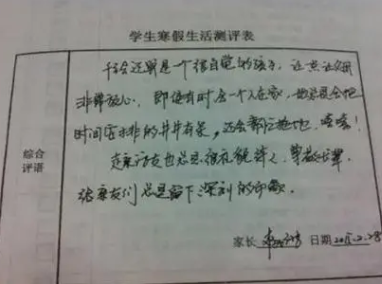 学生寒假生活测评表
综合
评语
还算是个很自觉的孩子，这点让我
非常放心，即使有时会一个人在家，她总是会把
时间安排的井井有条，还会帮忙拖地，嘻嘻！
走亲访友也总是很有礼貌，尊敬长辈，
给亲友们总是留下深刻的印象。
家长 日期